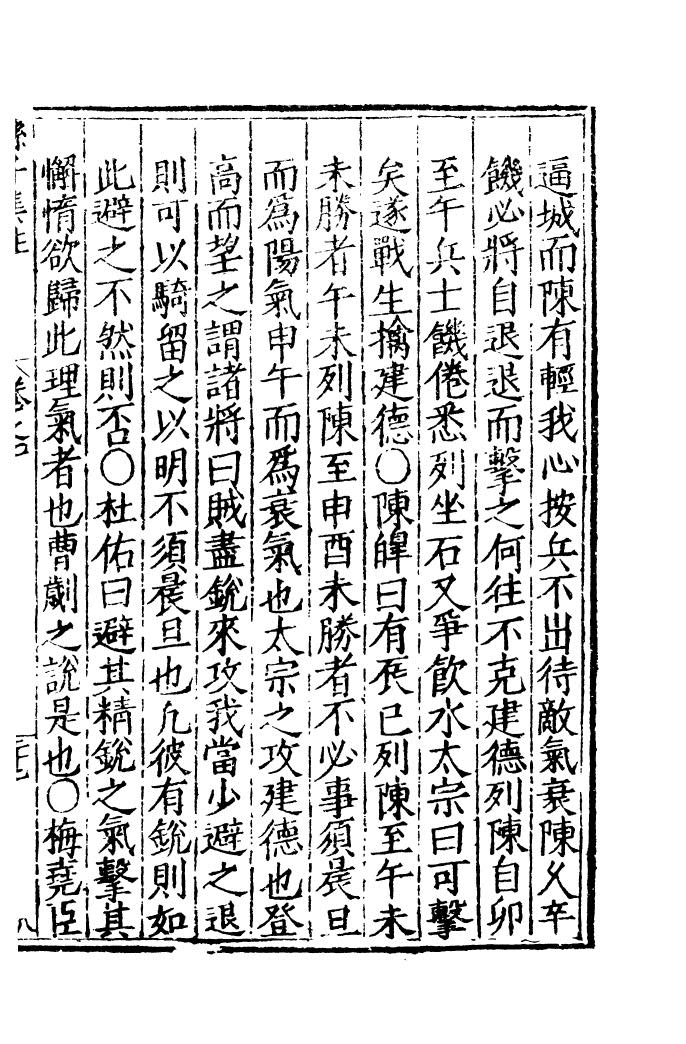 逼城而陳有輕我心按兵不出待敵氣衰陳久卒
饑必將自退退而擊之何往不克建德列陳自卯
至午兵士饑倦悉列坐石又爭飲水太宗曰可擊
矣遂戰生擒建德〇陳皥曰有辰巳列陳至午未
未勝者午未列陳至申酉未勝者不必事須晨旦
而爲陽氣申午而爲衰氣也太宗之攻建德也登
高而望之謂諸將曰賊盡銳來攻我當少避之退
則可以騎留之以明不須晨旦也凢彼有銳則如
此避之不然則否〇杜佑曰避其精銳之氣擊其
懈惰欲歸此理氣者也曹劌之說是也〇梅堯臣
孫子集注 卷之七